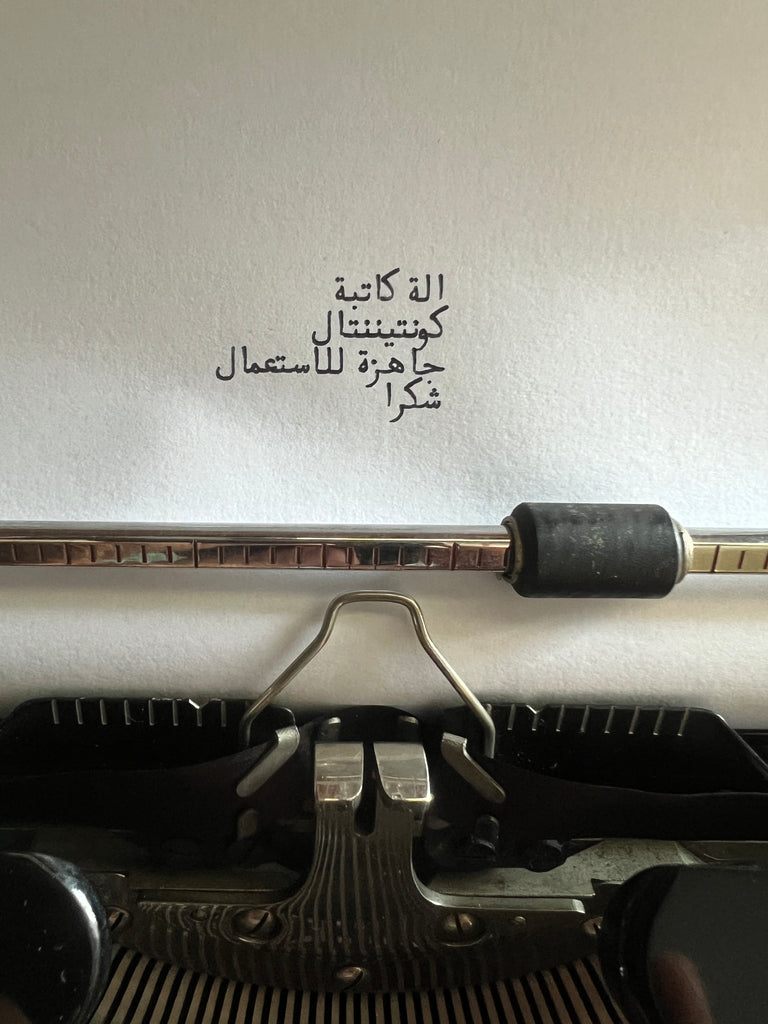 الة كاتبة
كونتيننتال
جاهزة للاستعمال
شكرا